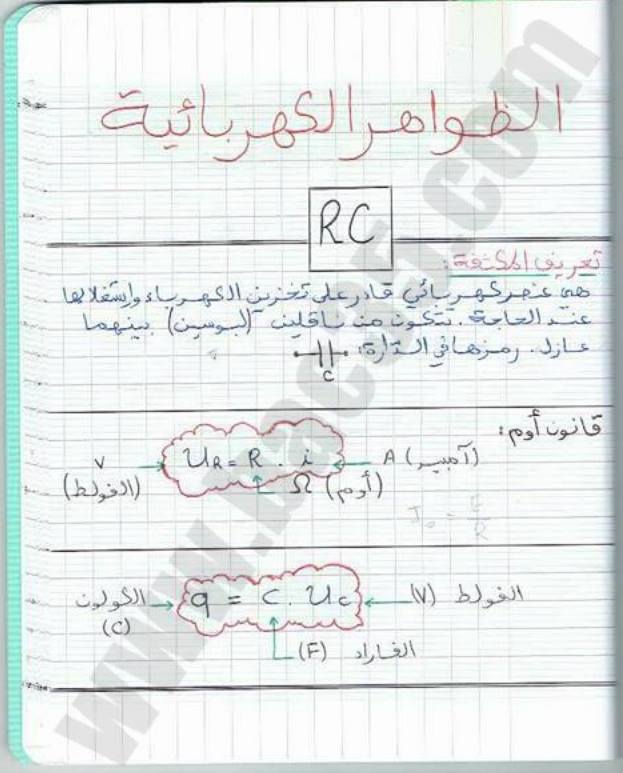 الظواهر الكهربائية
RC
تعريف المكثفة:
هي عنصر كهربائي قادر على تخزين الكهرباء وإستغلالها
عند الحاجة. تتكون من ناقلين (لبوسين) بينهما
عازل. رمزها في الدارة:
C
قانون أوم:
U_R = R . i
A (آمبير)
V
(الفولط)
Ω (أوم)
I₀ = E/R
q = C . U_C
الفولط (V)
الكولون
(C)
الفاراد (F)
www.bac35.com